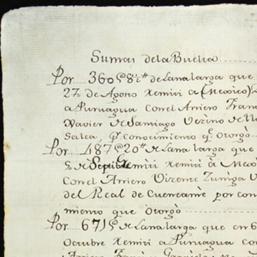 Sumas dela Buelta
Por 360@8℔ de Lana larga que
27 de Agosto remiti a (Mexico)
a Puruagua con el Arriero Fran
Xavier de Santiago Vezino de
Salea, qe conocimiento qe otorgò
Por 487@20℔ de Lana larga que
de Septiembre remiti a Mex
con el Arriero Vizente Zuñiga V
del Real de Cuencamè por con
miento que otorgò
Por 671@ de Lana larga que en 6
Octubre remiti a Puruagua con